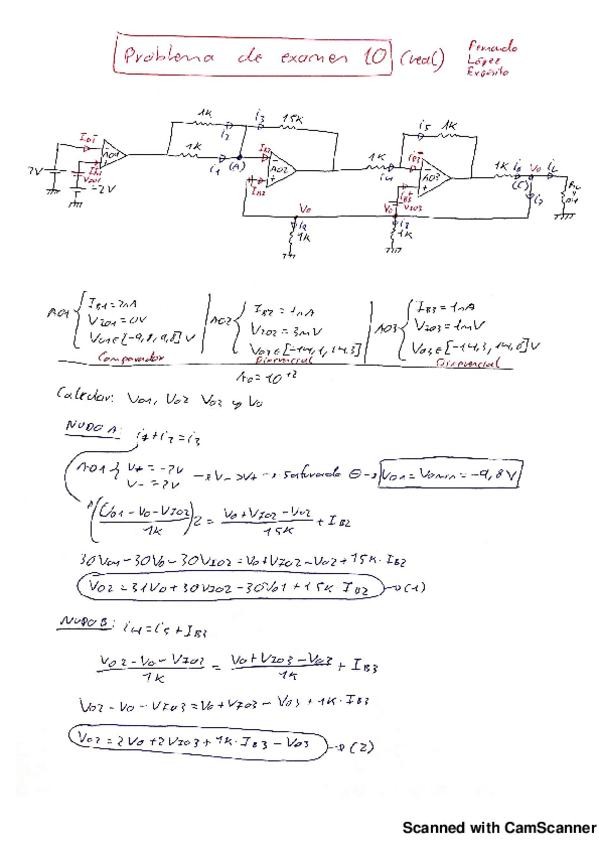 Problema de examen 10 (real)
Fernando
López
Expósito
1K i2 i3 15K
1K i1 (A)
AO1 AO2 AO3
7V -2V
i4 1K i5 1K
1K (C) Vo iL
Vo 1K
Vo 1K
AO1 { IB1=2nA
VIO1=0V
Vo1∈[-9,8, 9,8]V
Comparador
AO2 { IB2=1nA
VIO2=3mV
Vo2∈[-14,1, 14,3]
Diferencial
AO3 { IB3=1nA
VIO3=1mV
Vo3∈[-14,3, 14,8]V
Diferencial
Calcular: Vo1, Vo2 Vo3 y Vo
NUDO A: i1+i2=i3
AO1 { V+ = -2V
V- = 7V → V->V+ → Saturado ⊖ → Vo1=Vomin=-9,8V
((Vo1-Vo-VIO2)/1K)2 = (Vo+VIO2-Vo2)/15K + IB2
30Vo1-30Vo-30VIO2=Vo+VIO2-Vo2+15K·IB2
Vo2=31Vo+30VIO2-30Vo1+15K IB2 → (1)
NUDO B: i4=i5+IB3
(Vo2-Vo-VIO3)/1K = (Vo+VIO3-Vo3)/1K + IB3
Vo2-Vo-VIO3=Vo+VIO3-Vo3+1K·IB3
Vo2=2Vo+2VIO3+1K·IB3-Vo3 → (2)
Scanned with CamScanner